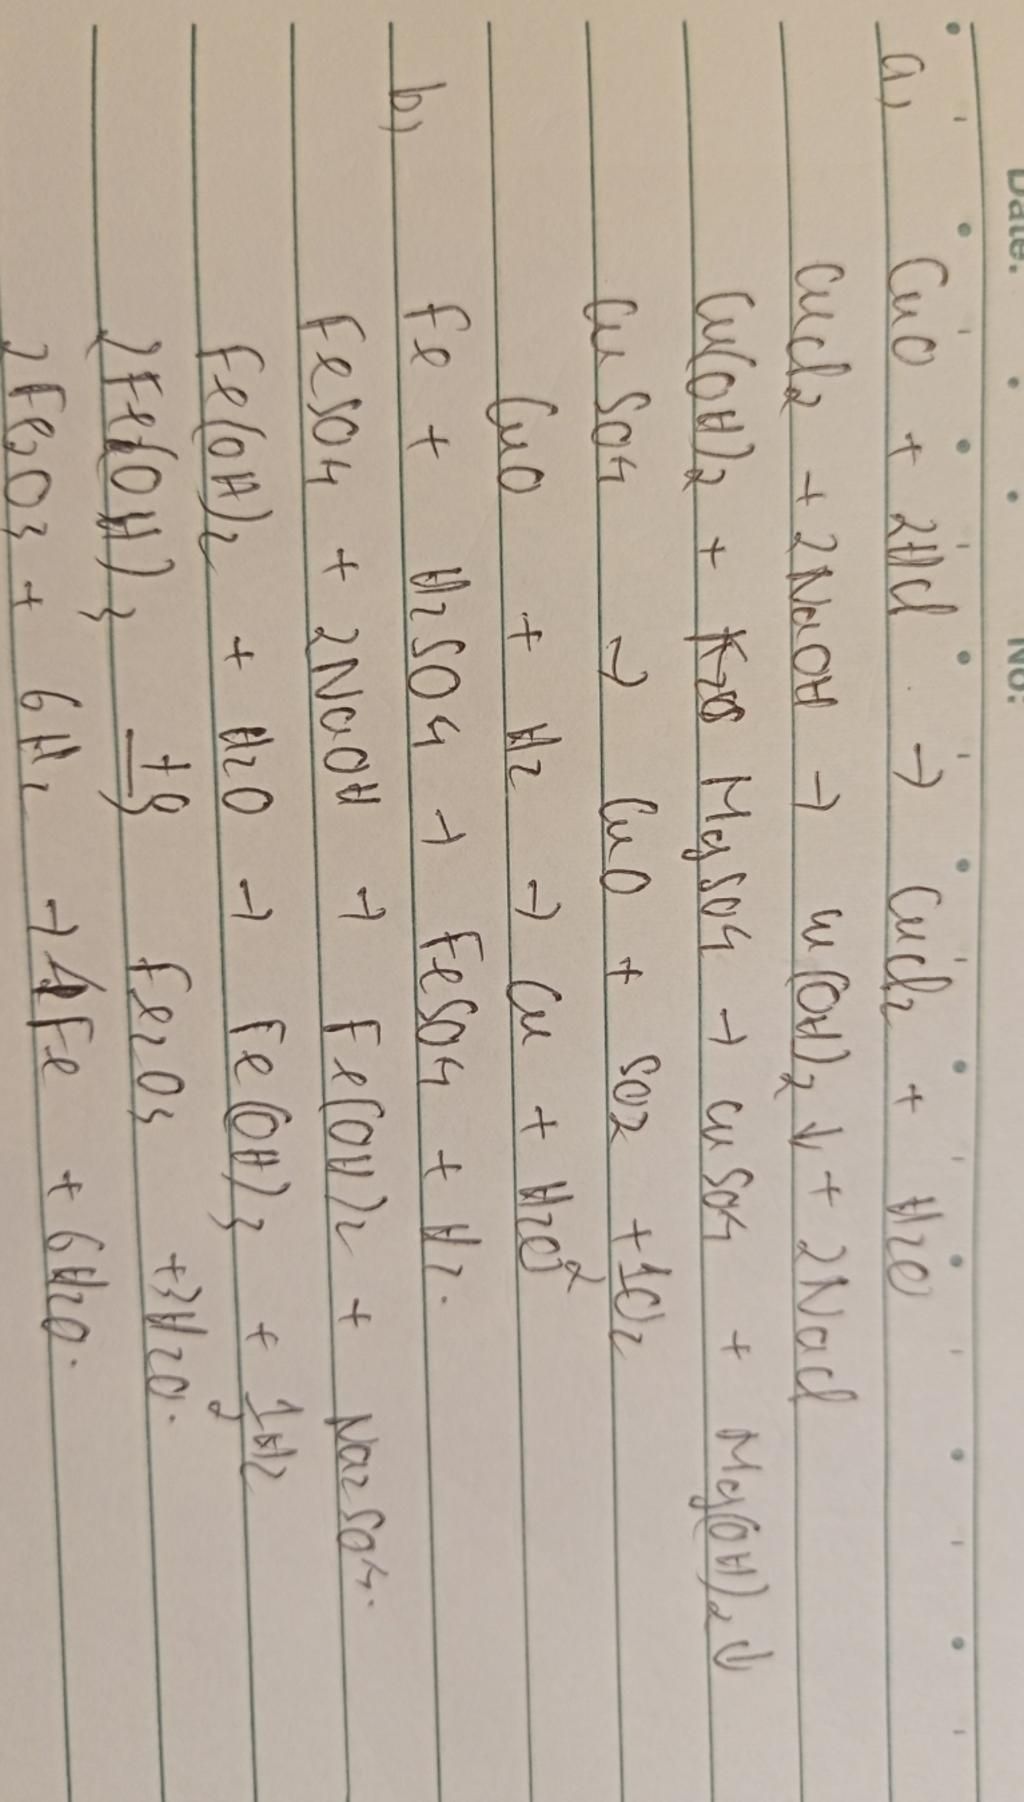 Date: No:
a, CuO + 2HCl → CuCl2 + H2O
CuCl2 + 2NaOH → Cu(OH)2 ↓ + 2NaCl
Cu(OH)2 + MgSO4 → CuSO4 + Mg(OH)2 ↓
CuSO4 → CuO + SO2 + 1/2O2
CuO + H2 → Cu + H2O
b, Fe + H2SO4 → FeSO4 + H2.
FeSO4 + 2NaOH → Fe(OH)2 + Na2SO4.
Fe(OH)2 + H2O → Fe(OH)3 + 1/2H2
2Fe(OH)3 t° Fe2O3 + 3H2O.
2Fe2O3 + 6H2 → 4Fe + 6H2O.